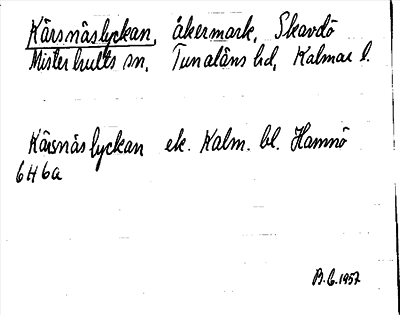 Kärsnäslyckan, åkermark, Skavdö
Misterhults sn, Tunaläns hd, Kalmar l.
Kärsnäslyckan ek. Kalm. bl. Hamnö
6H6a
B.G. 1957